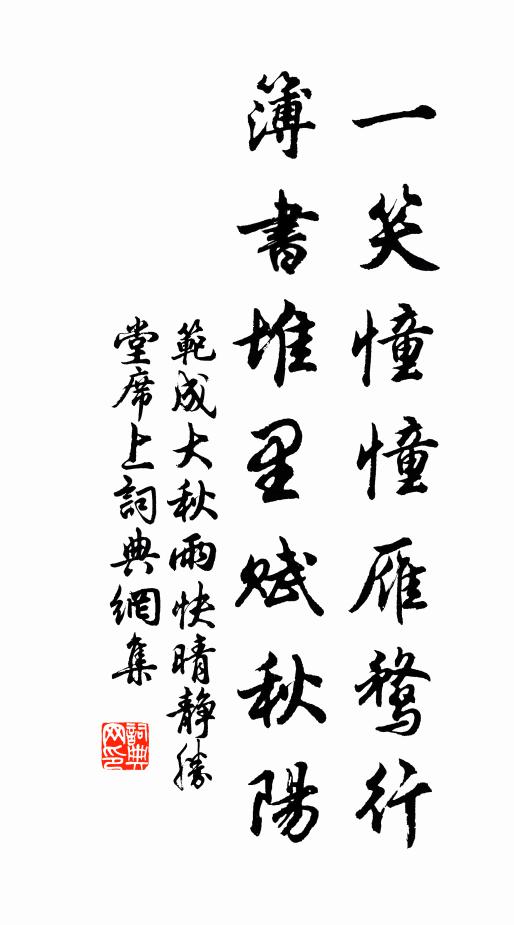 一笑憧憧雁鶩行
簿書堆里賦秋陽
範成大秋雨快晴靜勝
堂席上詞典網集
詞典
网印